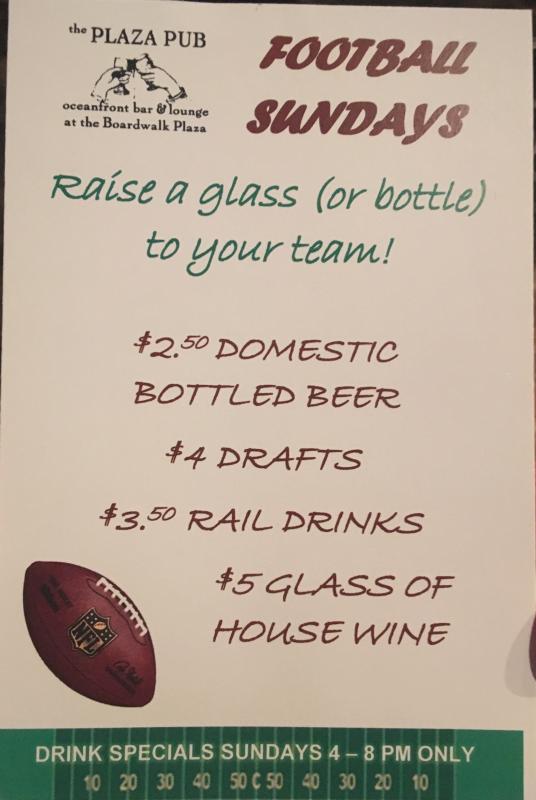 the PLAZA PUB
oceanfront bar & lounge
at the Boardwalk Plaza
FOOTBALL
SUNDAYS
Raise a glass (or bottle)
to your team!
$2.50 DOMESTIC
BOTTLED BEER
$4 DRAFTS
$3.50 RAIL DRINKS
$5 GLASS OF
HOUSE WINE
NFL
DRINK SPECIALS SUNDAYS 4 – 8 PM ONLY
10 20 30 40 50 C 50 40 30 20 10